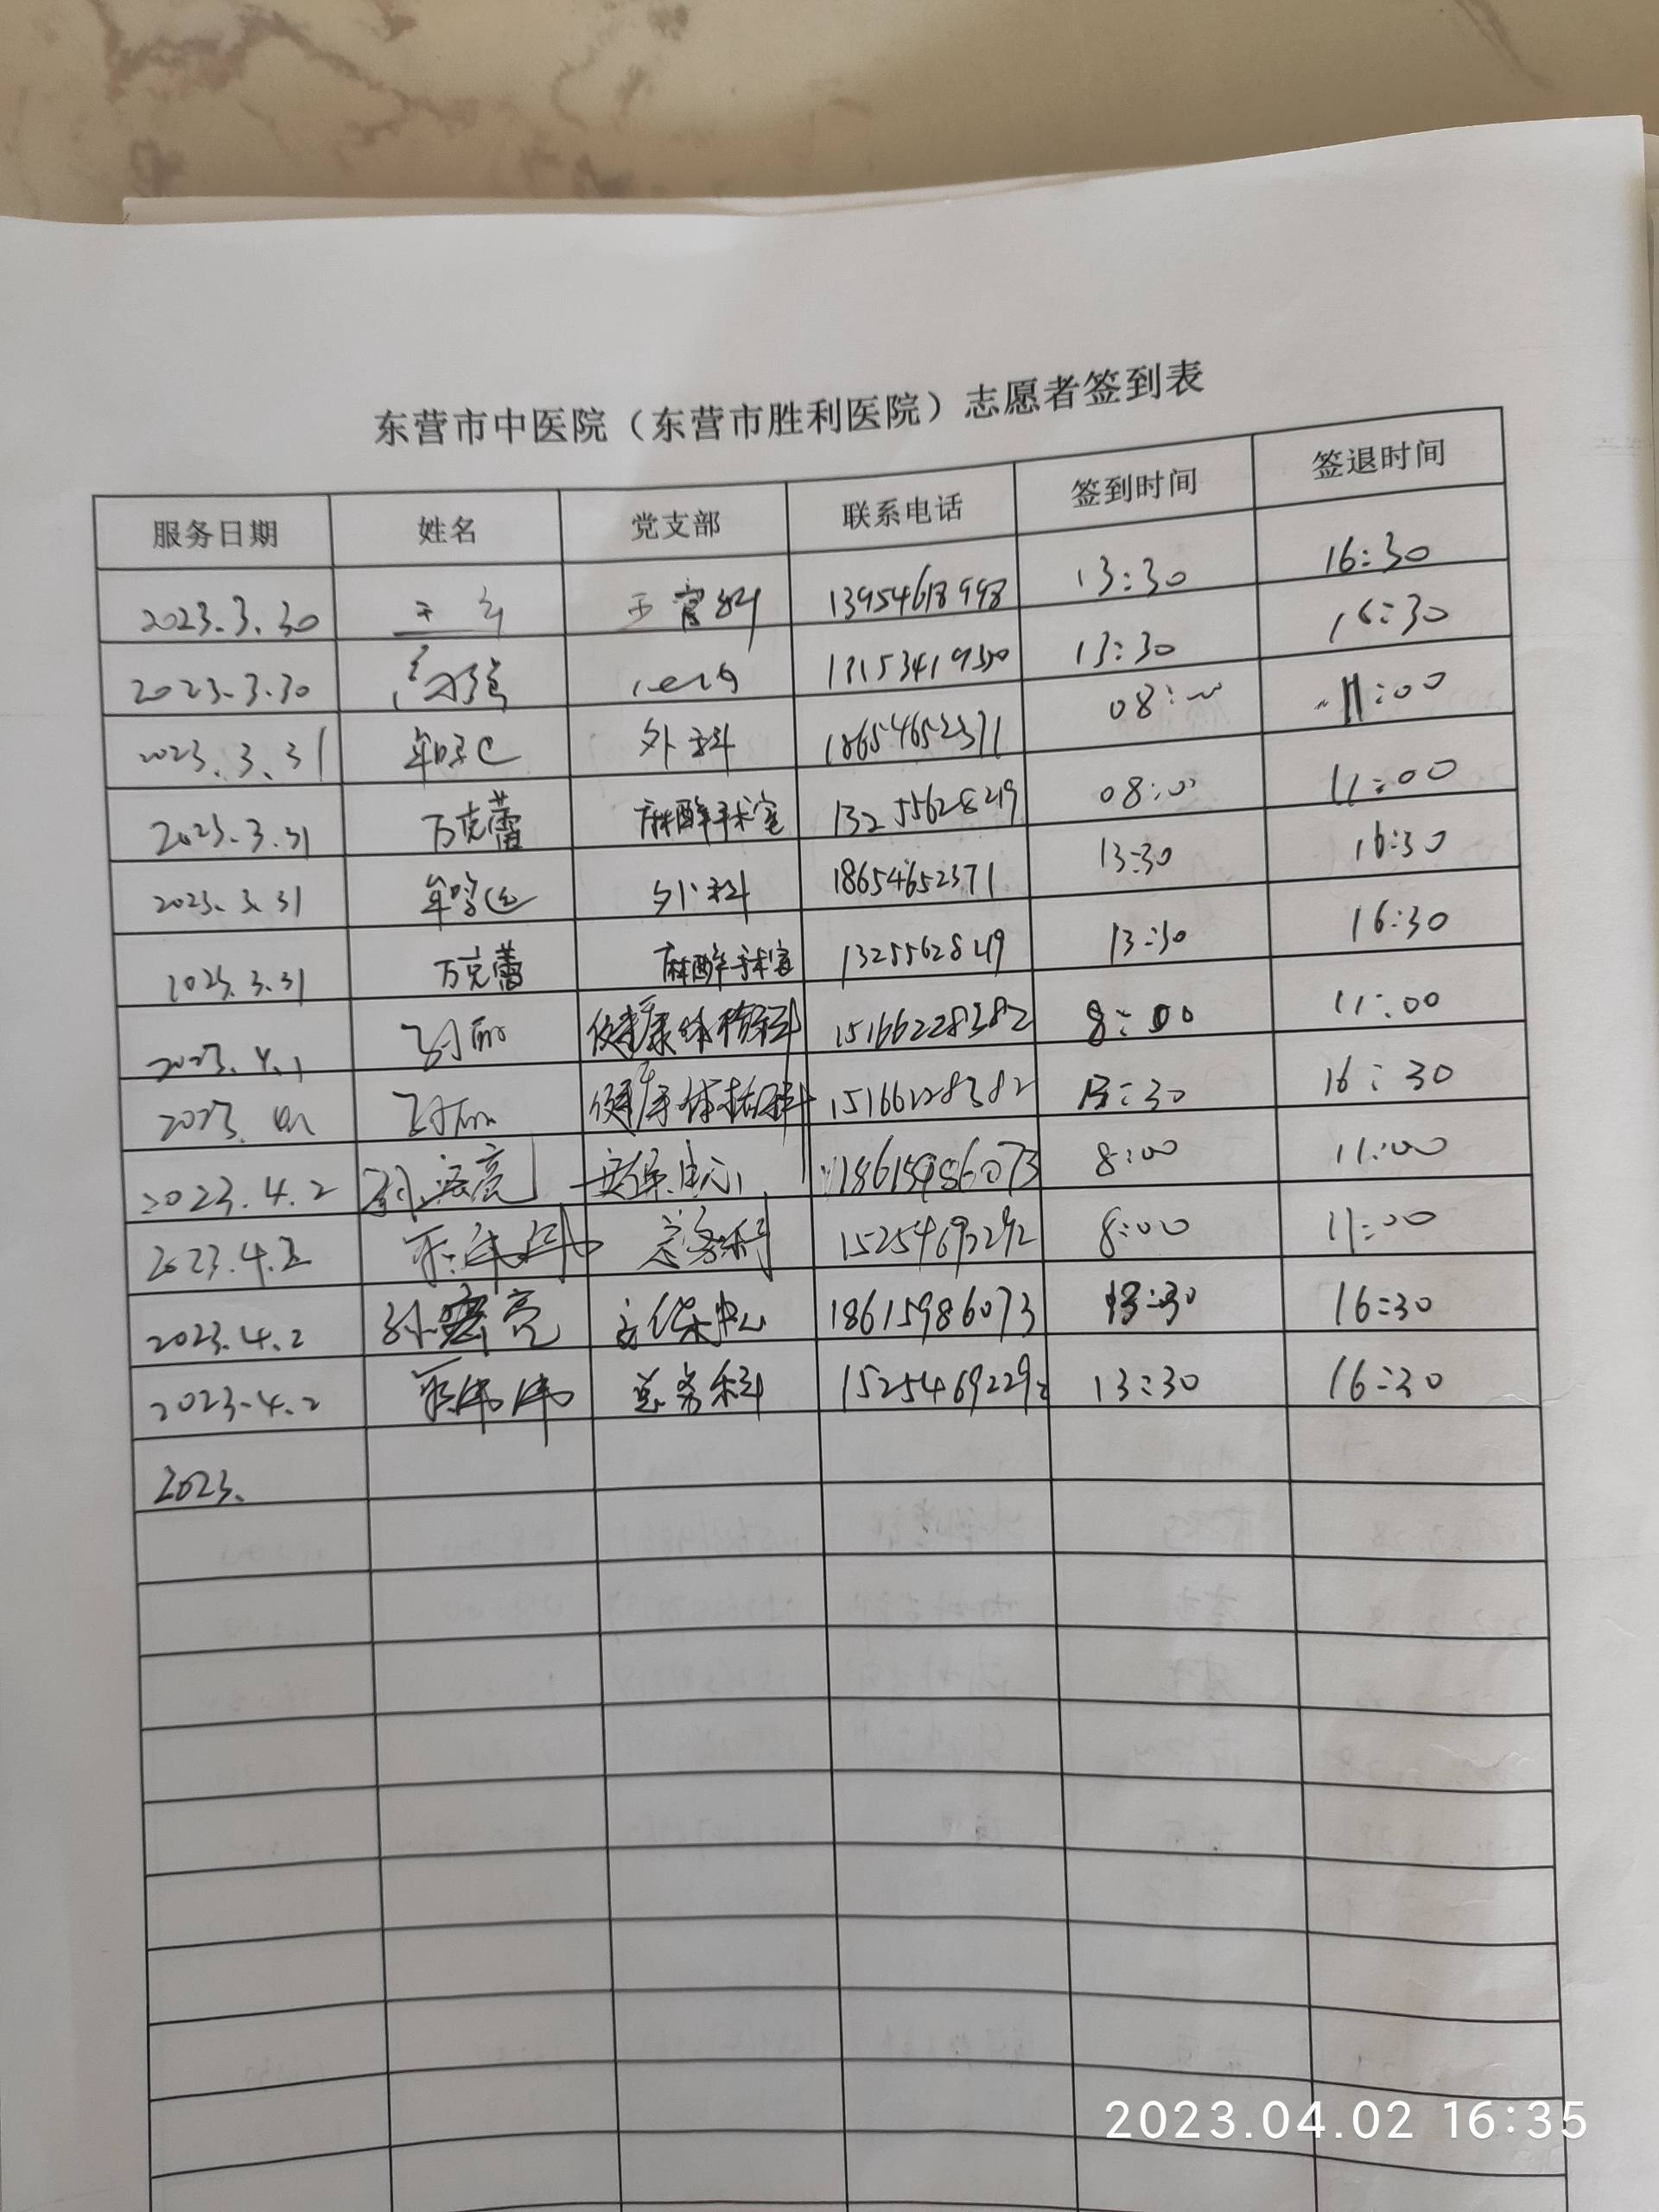 东营市中医院（东营市胜利医院）志愿者签到表
服务日期 姓名 党支部 联系电话 签到时间 签退时间
2023.3.30 13954618998 13:30 16:30
2023.3.30 13:30 16:30
2023.3.31 外科 18654652371 08:00 11:00
2023.3.31 万克蕾 麻醉手术室 13255628219 08:00 11:00
2023.3.31 外科 18654652371 13:30 16:30
2023.3.31 万克蕾 麻醉手术室 13255628219 13:30 16:30
2023.4.1 孙丽 健康体检科 15166228382 8:00 11:00
2023.4.1 孙丽 健康体检科 15166228382 13:30 16:30
2023.4.2 孙宏亮 18615986073 8:00 11:00
2023.4.2 总务科 15254692292 8:00 11:00
2023.4.2 孙宏亮 18615986073 13:30 16:30
2023.4.2 伟伟 总务科 15254692292 13:30 16:30
2023.
2023.04.02 16:35